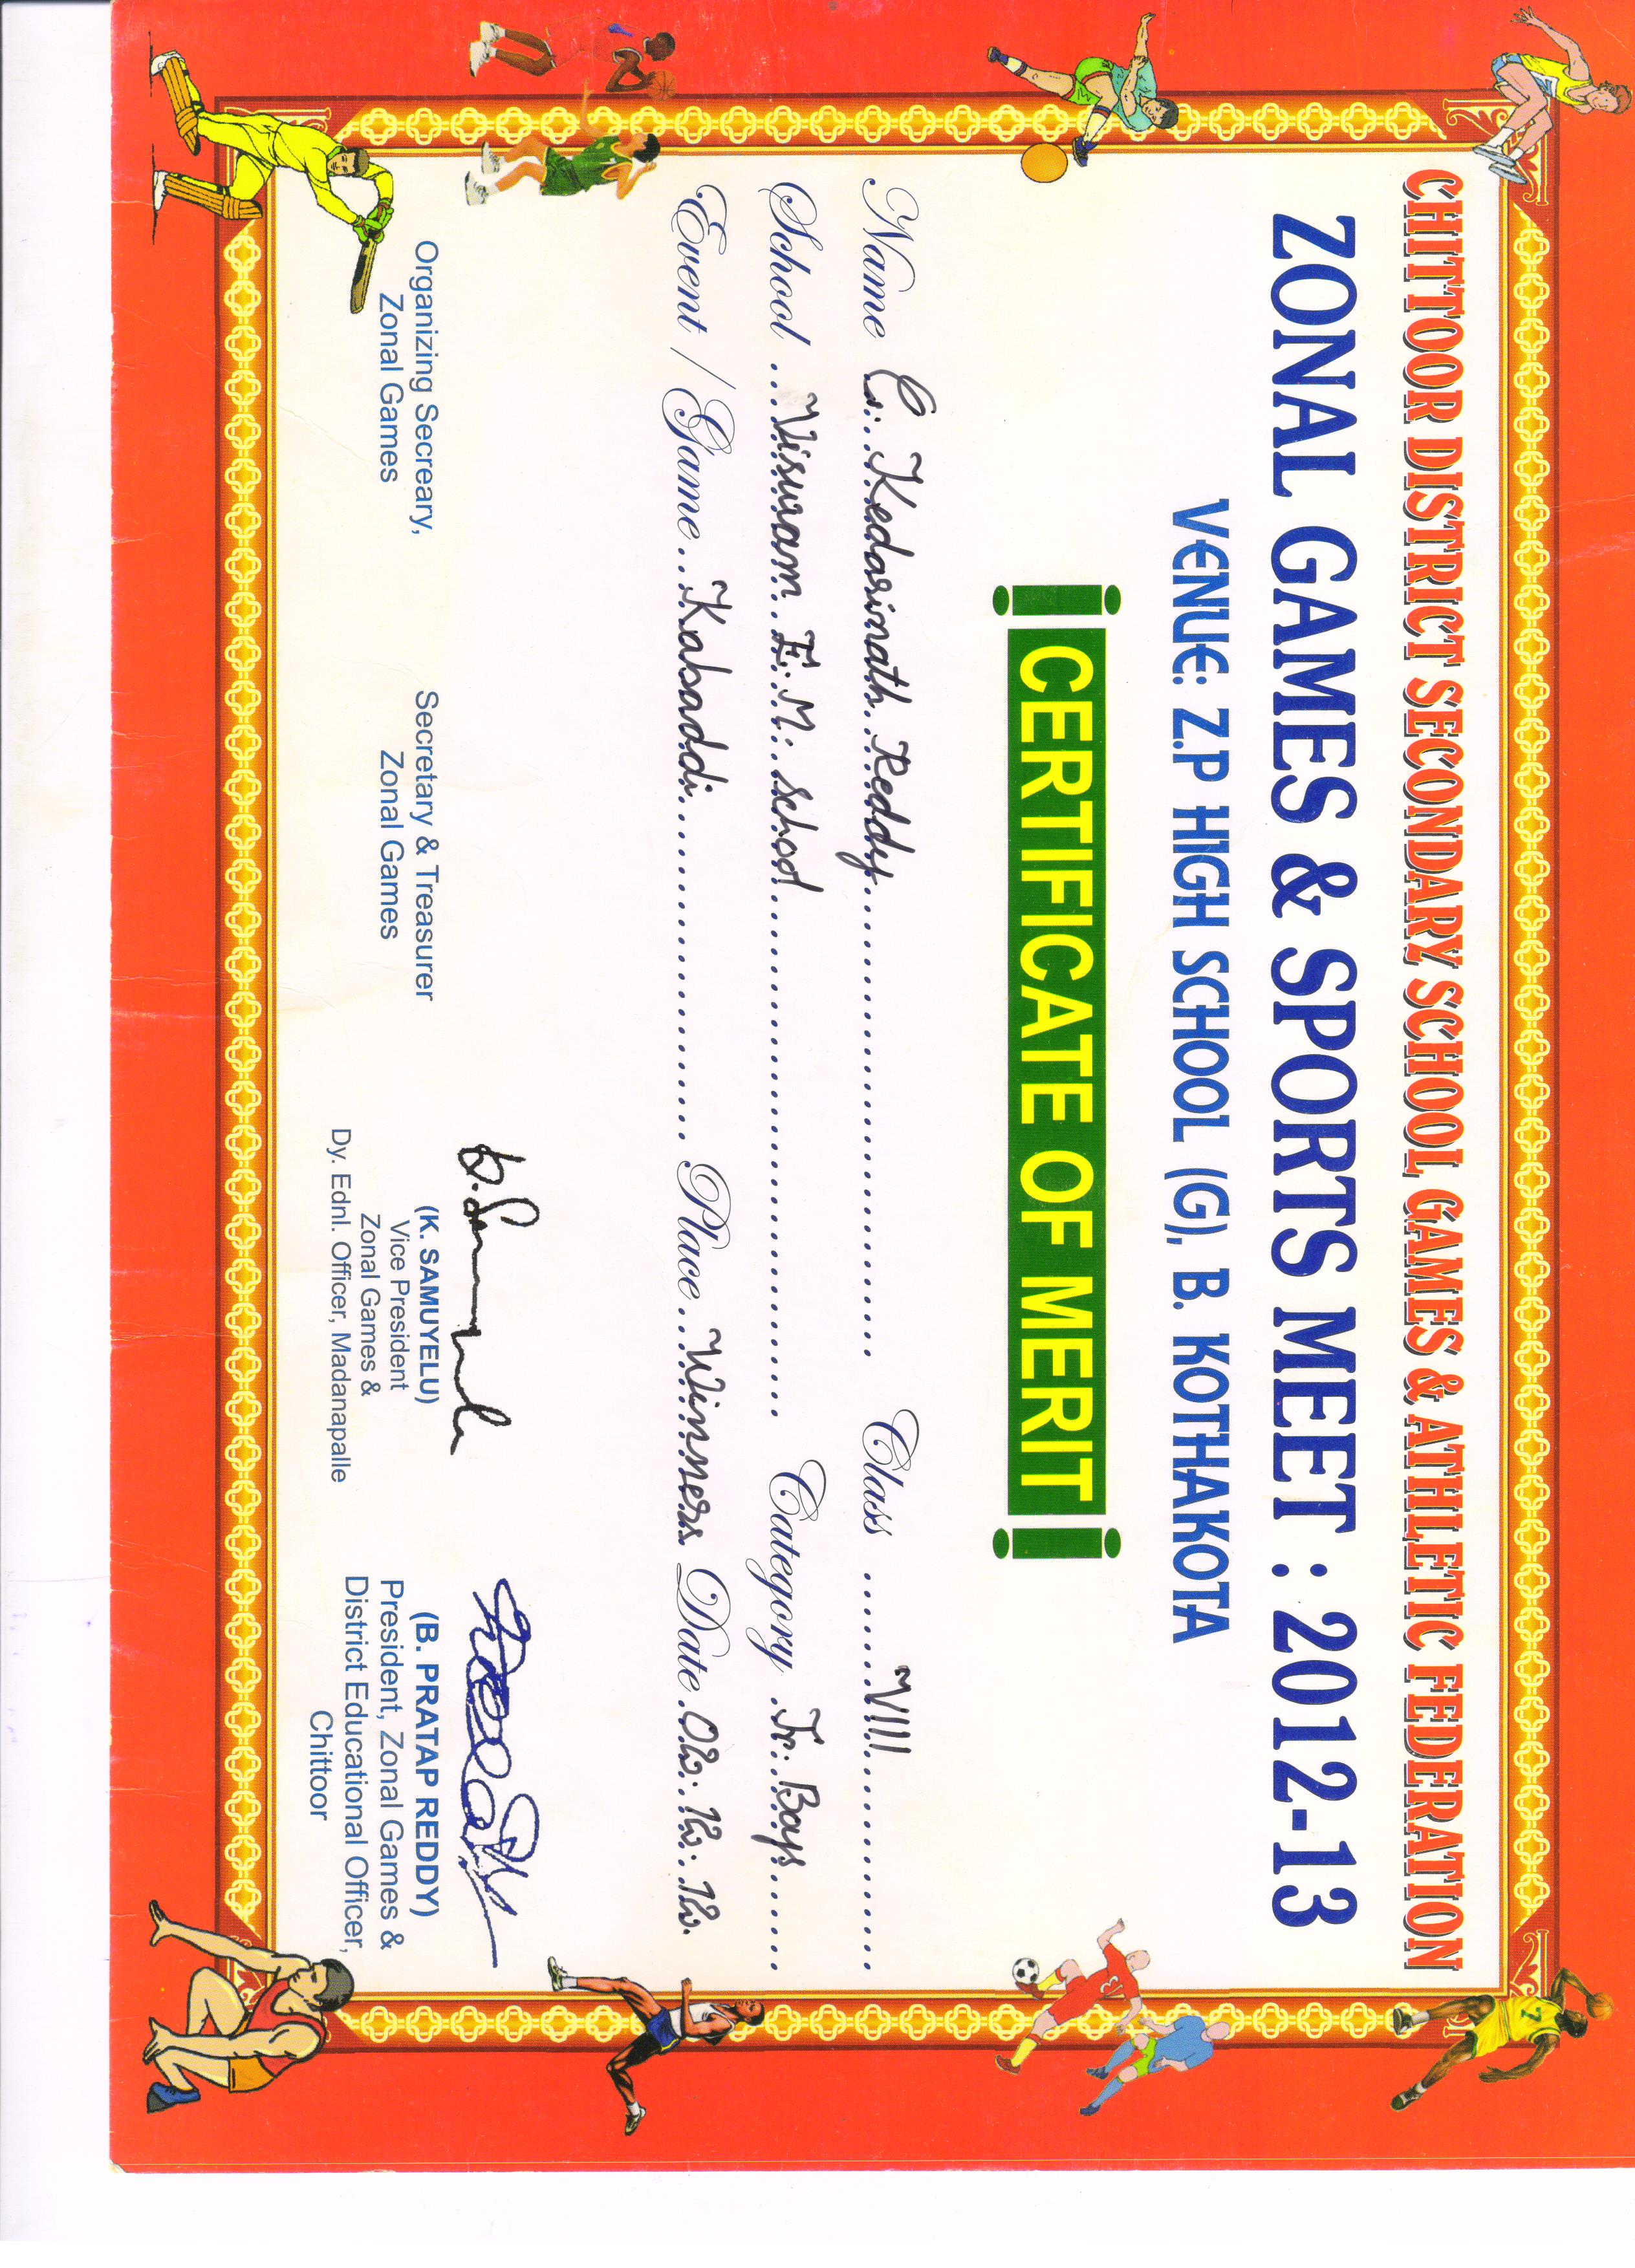 CHITTOOR DISTRICT SECONDARY SCHOOL GAMES & ATHLETIC FEDERATION
ZONAL GAMES & SPORTS MEET : 2012-13
VENUE: Z.P HIGH SCHOOL (G), B. KOTHAKOTA
CERTIFICATE OF MERIT
Name C. Kedarinath Reddy Class VIII
School Viswam E.M. School Category Jr. Boys
Event / Game Kabaddi Place Winners Date 02.12.12.
K. Samuyelu
Organizing Secreary,
Zonal Games
Secretary & Treasurer
Zonal Games
(K. SAMUYELU)
Vice President
Zonal Games &
Dy. Ednl. Officer, Madanapalle
(B. PRATAP REDDY)
President, Zonal Games &
District Educational Officer,
Chittoor
7